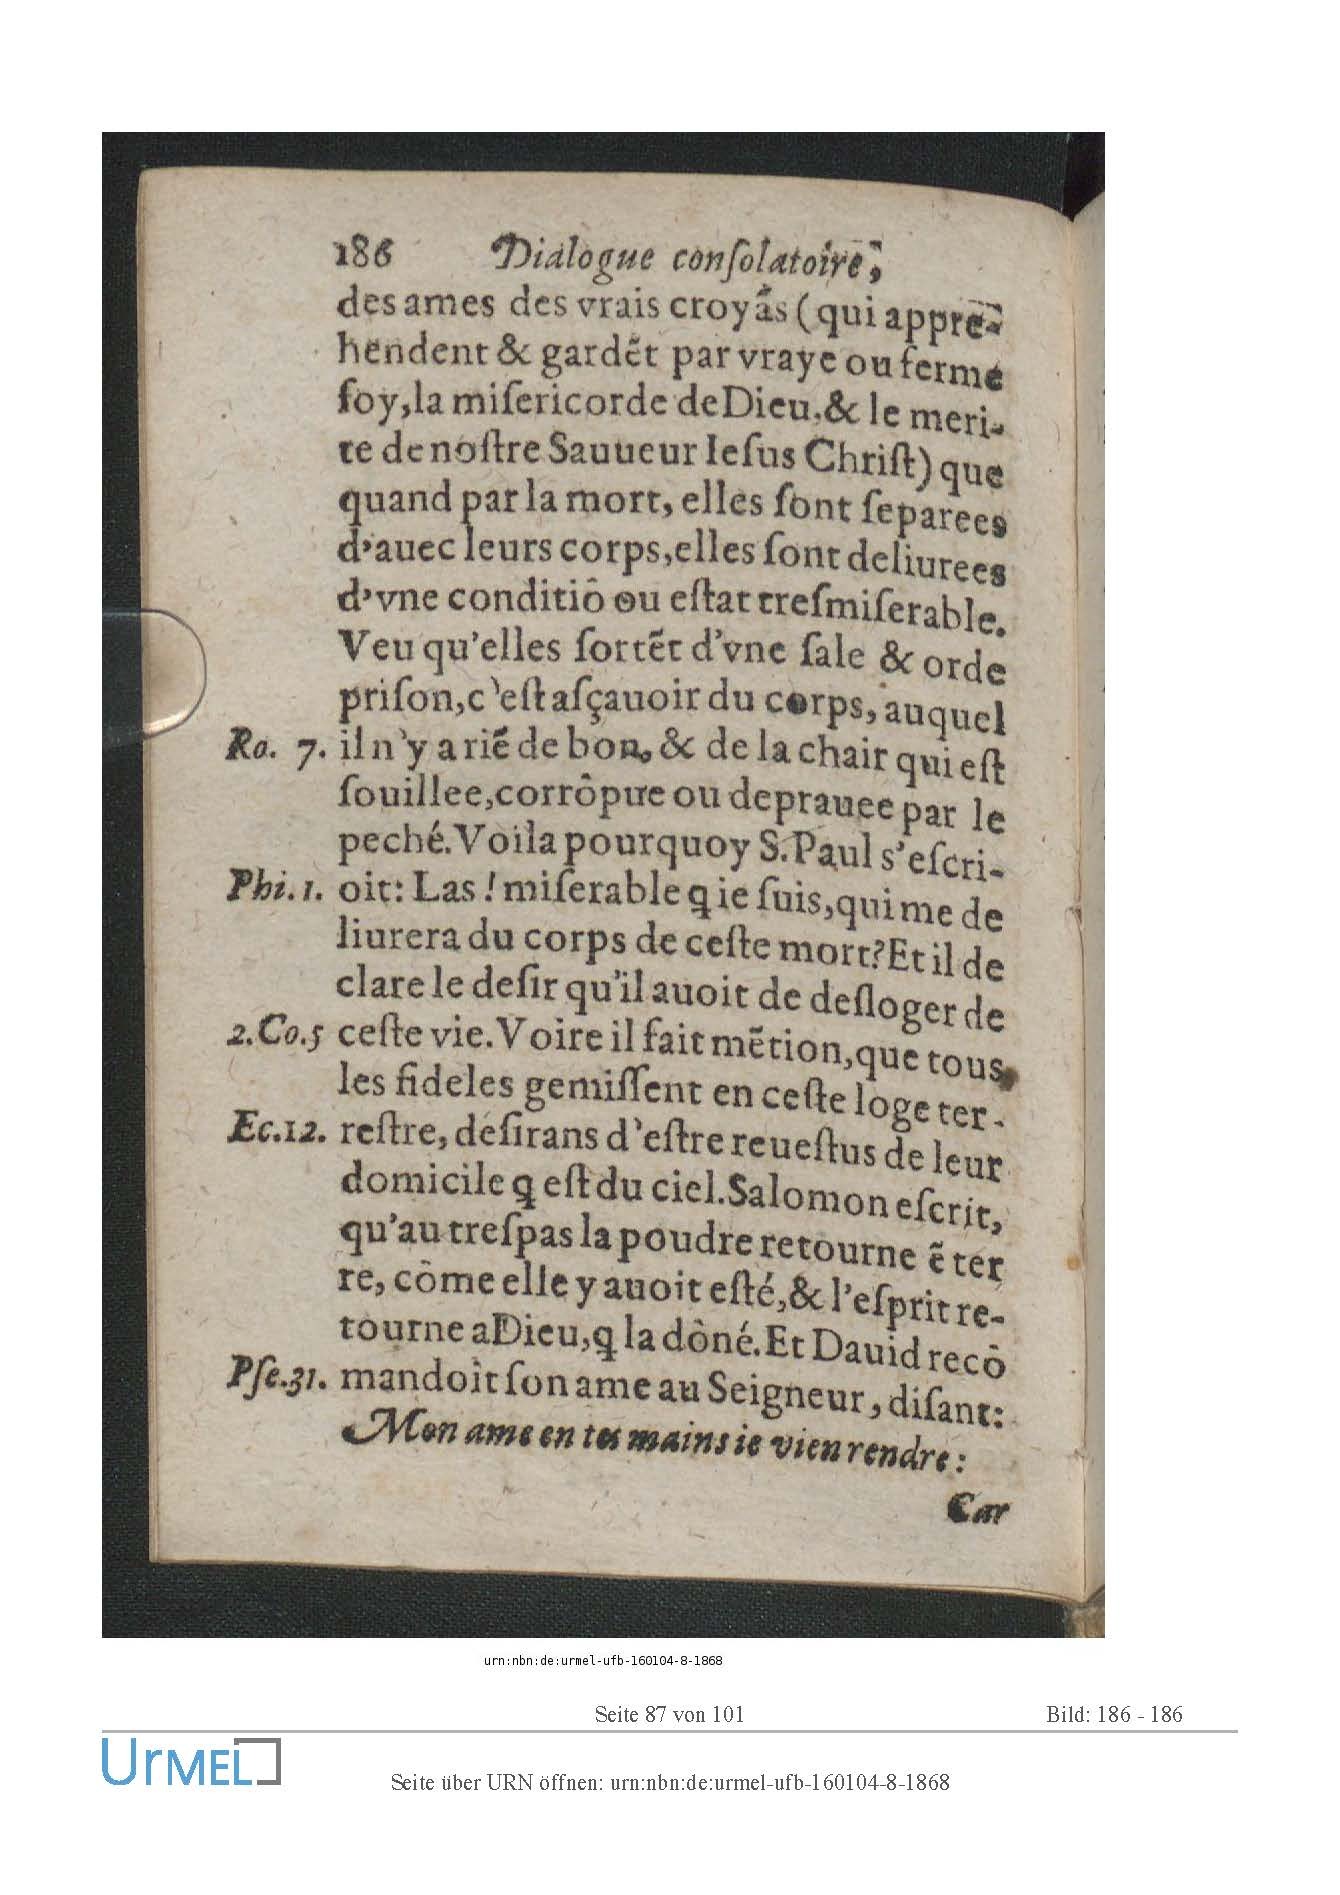 186 Dialogue conſolatoire,
des ames des vrais croyãs (qui appre-
hendent & gardẽt par vraye ou ferme
foy,la miſericorde de Dieu,& le meri-
te de noſtre Sauueur Ieſus Chriſt) que
quand par la mort, elles ſont ſeparees
d'auec leurs corps,elles ſont deliurees
d'vne conditiõ ou eſtat treſmiſerable.
Veu qu'elles ſortẽt d'vne ſale & orde
priſon,c'eſt aſçauoir du corps, auquel
Ro. 7. il n'y a riẽ de bon, & de la chair qui eſt
ſouillee,corrõpue ou deprauee par le
peché.Voila pourquoy S.Paul s'eſcri-
Phi.1. oit: Las ! miſerable q ie ſuis,qui me de
liurera du corps de ceſte mort?Et il de
clare le deſir qu'il auoit de deſloger de
2.Co.5 ceſte vie.Voire il fait mẽtion,que tous
les fideles gemiſſent en ceſte loge ter-
Ec.12. reſtre, deſirans d'eſtre reueſtus de leur
domicile q eſt du ciel.Salomon eſcrit,
qu'au treſpas la poudre retourne ẽ ter
re, cõme elle y auoit eſté,& l'eſprit re-
tourne a Dieu,q la dõné.Et Dauid recõ
Pſe.31. mandoit ſon ame au Seigneur, diſant:
Mon ame en tes mains ie vien rendre:
Car
urn:nbn:de:urmel-ufb-160104-8-1868
Seite 87 von 101 Bild: 186 - 186
UrMEL
Seite über URN öffnen: urn:nbn:de:urmel-ufb-160104-8-1868